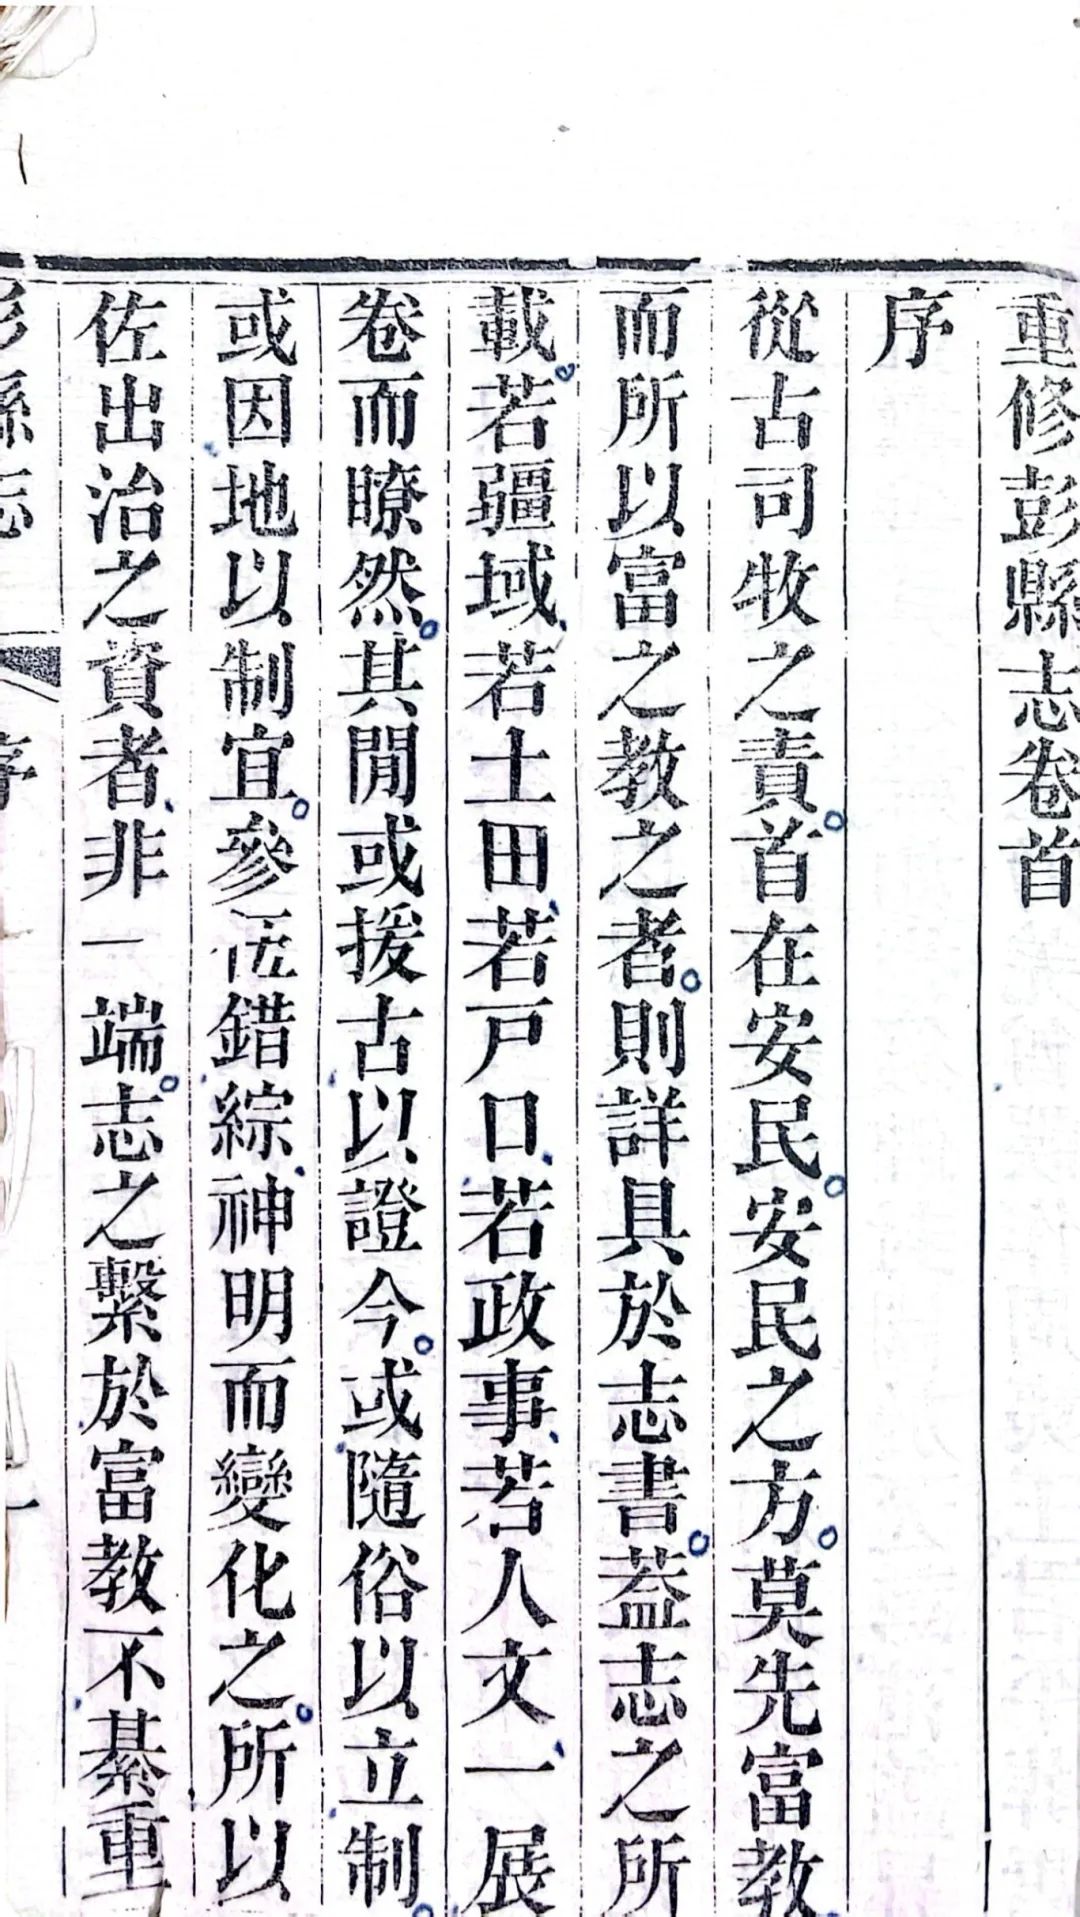 重修彭縣志卷首
序
從古司牧之責。首在安民。安民之方。莫先富教
而所以富之教之者。則詳具於志書。葢志之所
載。若疆域、若土田、若戸口、若政事、若人文、一展
卷而瞭然。其閒或援古以證今。或隨俗以立制。
或因地以制宜。參伍錯綜、神明而變化之。所以
佐出治之資者、非一端。志之繫於富教不綦重
彭縣志 序 一